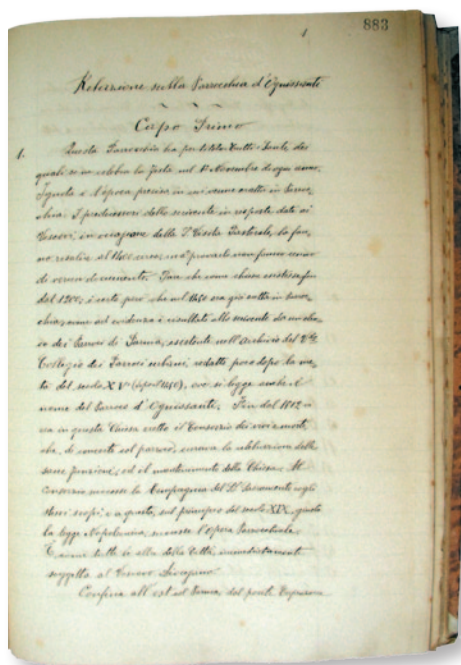 883
1
Relazione sulla Parrocchia d'Ognissanti
Capo Primo
1.
Questa Parrocchia ha per titolo Tutti i Santi dei
quali se ne celebra la festa nel 1º Novembre di ogni anno.
Ignota è l'epoca precisa in cui venne eretta in Parroc-
chia. I predecessori dello scrivente in risposte date ai
Vescovi, in occasione della S. Visita Pastorale, la fan-
no risalire al 1400 circa, ma a provarlo non fanno cenno
di verun documento. Pare che come chiesa esistesse fin
dal 1200; è certo però che nel 1460 era già eretta in Parroc-
chia, come ad evidenza è risultato allo scrivente da un elen-
co dei Parroci di Parma, esistente nell'Archivio del
Collegio dei Parroci urbani, redatto poco dopo la me-
tà del secolo XV (dopo il 1460), ove si legge anche il
nome del Parroco d'Ognissanti. Fin dal
era in questa Chiesa eretto il Consorzio dei vivi e morti
che, di concerto col parroco, curava la celebrazione delle
sacre funzioni, ed il mantenimento della Chiesa. Al
Consorzio successe la Compagnia del SS. Sacramento cogli
stessi scopi; e a questa, sul principio del secolo XIX, giusta
la legge Napoleonica, successe l'Opera Parrocchiale.
È, come tutte le altre della Città, immediatamente
soggetta al Vescovo
Confina all'est col Parma, dal ponte